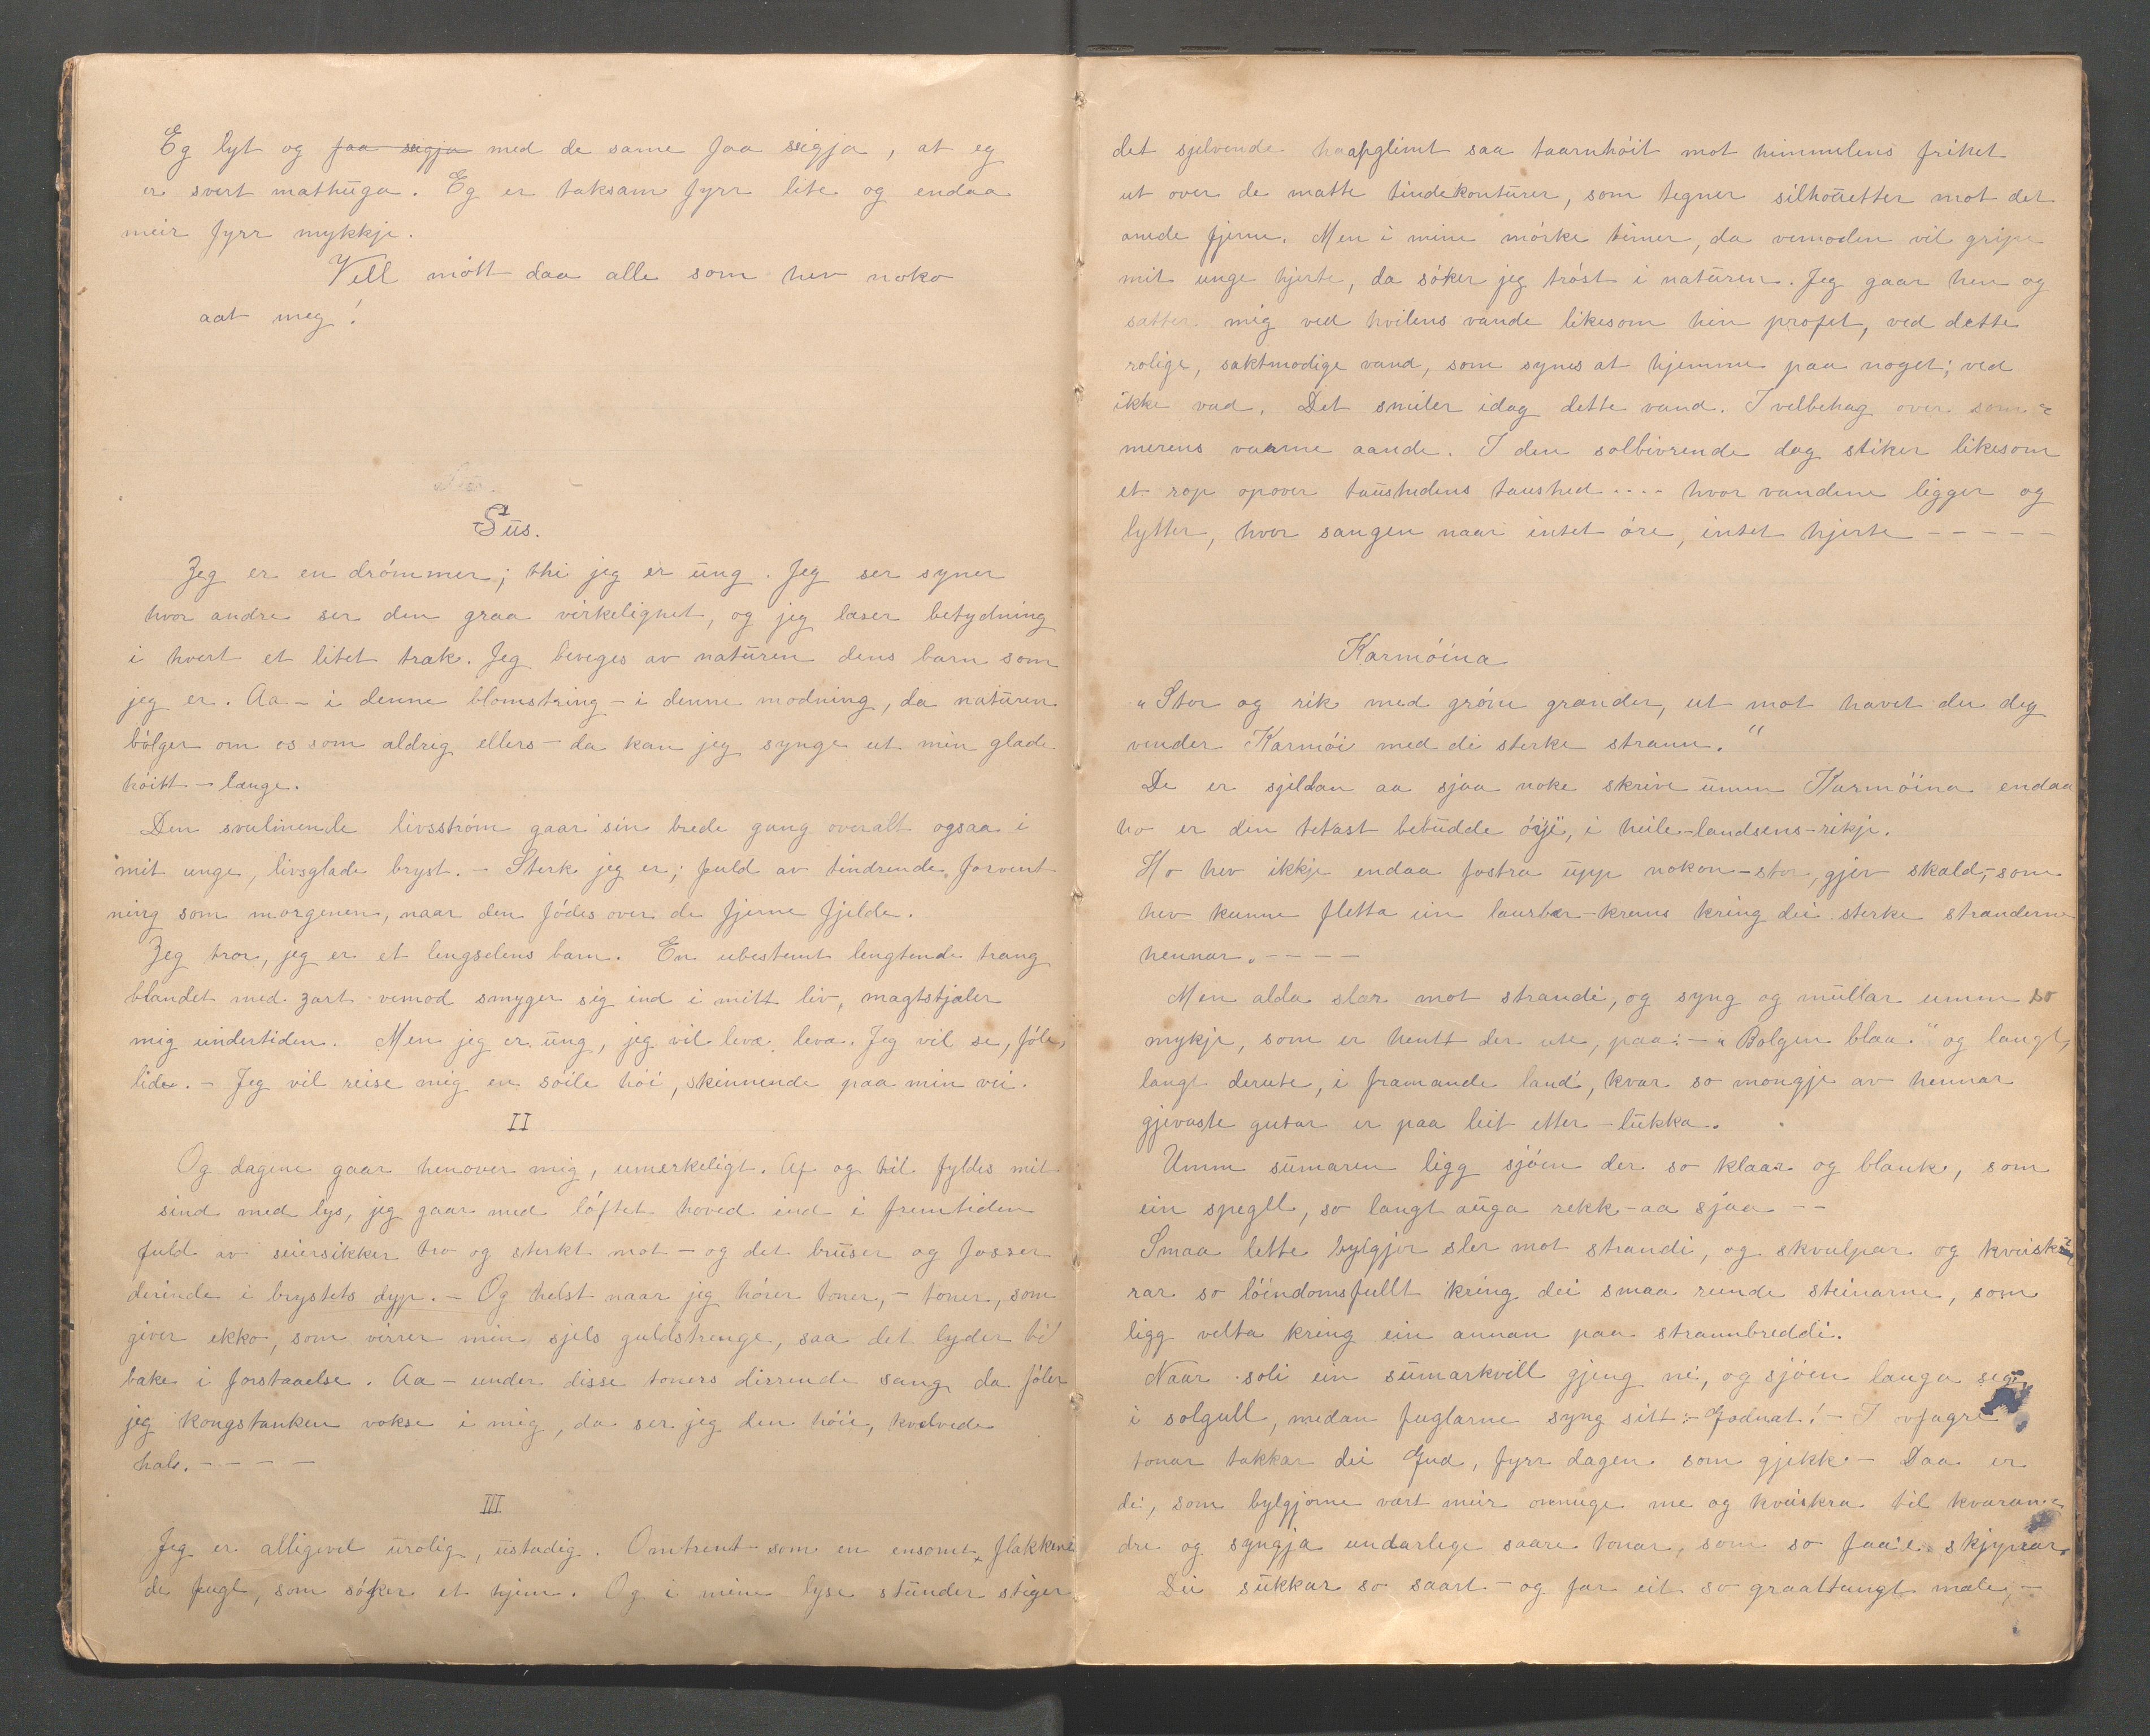 Eg lyt og faa seigja med de same faa seigja, at eg
er svert mathuga. Eg er taksam fyrr lite og endaa
meir fyrr mykkje.
Vell mött daa alle som hev noko
aat meg!
Sus.
Jeg er en drömmer; thi jeg er ung. Jeg ser syner
hvor andre ser den graa virkelighet, og jeg læser betydning
i hvert et litet træk. Jeg beveges av naturen dens barn som
jeg er. Aa - i denne blomstring - i denne modning, da naturen
bölger om os som aldrig ellers - da kan jeg synge ut min glæde
höitt - længe.
Den svulmende livsström gaar sin brede gang overalt ogsaa i
mit unge, livsglade bryst. - Sterk jeg er; fuld av tindrende forvent-
ning som morgenen, naar den födes over de fjerne fjelde.
Jeg tror, jeg er et lengselens barn. En ubestemt lengtende trang
blandet med zart vemod smyger sig ind i mitt liv, magtstjæler
mig undertiden. Men jeg er ung, jeg vil leve, leve. Jeg vil se, föle,
lide. - Jeg vil reise mig en söile höi, skinnende paa min vei.
II
Og dagene gaar henover mig, umerkeligt. Af og til fyldes mit
sind med lys, jeg gaar med löftet hoved ind i fremtiden
fuld av seiersikker tro og sterkt mot - og det bruser og fosser
derinde i brystets dyp. - Og helst naar jeg hörer toner, - toner, som
giver ekko, som virrer min sjels guldstrenge, saa det lyder til
bake i forstaaelse. Aa - under disse toners dirrende sang da föler
jeg kongstanken vokse i mig, da ser jeg den höie, hvelvede
hal. - - - -
III
Jeg er alligevel urolig, ustadig. Omtrent som en ensomt flakken
de fugl, som söker et hjem. Og i mine lyse stunder stiger
det sjelvende haapglimt saa taarnhöit mot himmelens frihet
ut over de matte tindekonturer, som tegner silhouetter mot det
anede fjerne. Men i mine mörke timer, da vemoden vil gripe
mit unge hjerte, da söker jeg tröst i naturen. Jeg gaar hen og
sætter mig ved hvilens vande likesom hin profet, ved dette
rolige, saktmodige vand, som synes at hjemme paa noget; ved
ikke vad. Det smiler idag dette vand. I velbehag over som=
merens varme aande. I den solbivrende dag stiker likesom
et rop opover taushedens taushed .... hvor vandene ligger og
lytter, hvor sangen naar intet öre, intet hjerte - - - - -
Karmöina
"Stor og rik med gröne grander, ut mot havet du deg
vender Karmöi med di sterke strann."
De er sjeldan aa sjaa noke skrive umm Karmöina endaa
ho er den tetast bebudde öyi, i heile-landsens-rikje.
Ho hev ikkje endaa fostra upp nokon-stor, gjev skald,-som
hev kunne fletta ein laurbær-krans kring dei sterke stranderne
hennar. - - - -
Men alda slær mot strandi, og syng og mullar umm so
mykje, som er hentt der ute, paa: - "Bolgen blaa." og langt,
langt derute, i framande land, kvar so mongje av hennar
gjevaste gutar er paa leit etter - lukka.
Umm sumaren ligg sjöen der so klaar og blank, som
ein spegll, so langt auga rekk - aa sjaa - -
Smaa lette bylgjor sler mot strandi, og skvalpar og kveisk=
rar so löindomsfullt kring dei smaa runde steinarne, som
ligg velta kring ein annan paa strannbreddi.
Naar soli ein sumarkvell gjeng ne, og sjöen lauga seg
i solgull, medan fuglarne syng sitt:- Godnat! - I ovfagre
tonar takkar dei Gud, fyrr dagen som gjekk - Daa er
de, som bylgjorne vært meir ovnuge me og kveiskra til kvaran=
dre og syngja undarlege saare tonar, som so faa e skjynar.
Dei sukkar so saart - og far eit so graattungt mæle, -